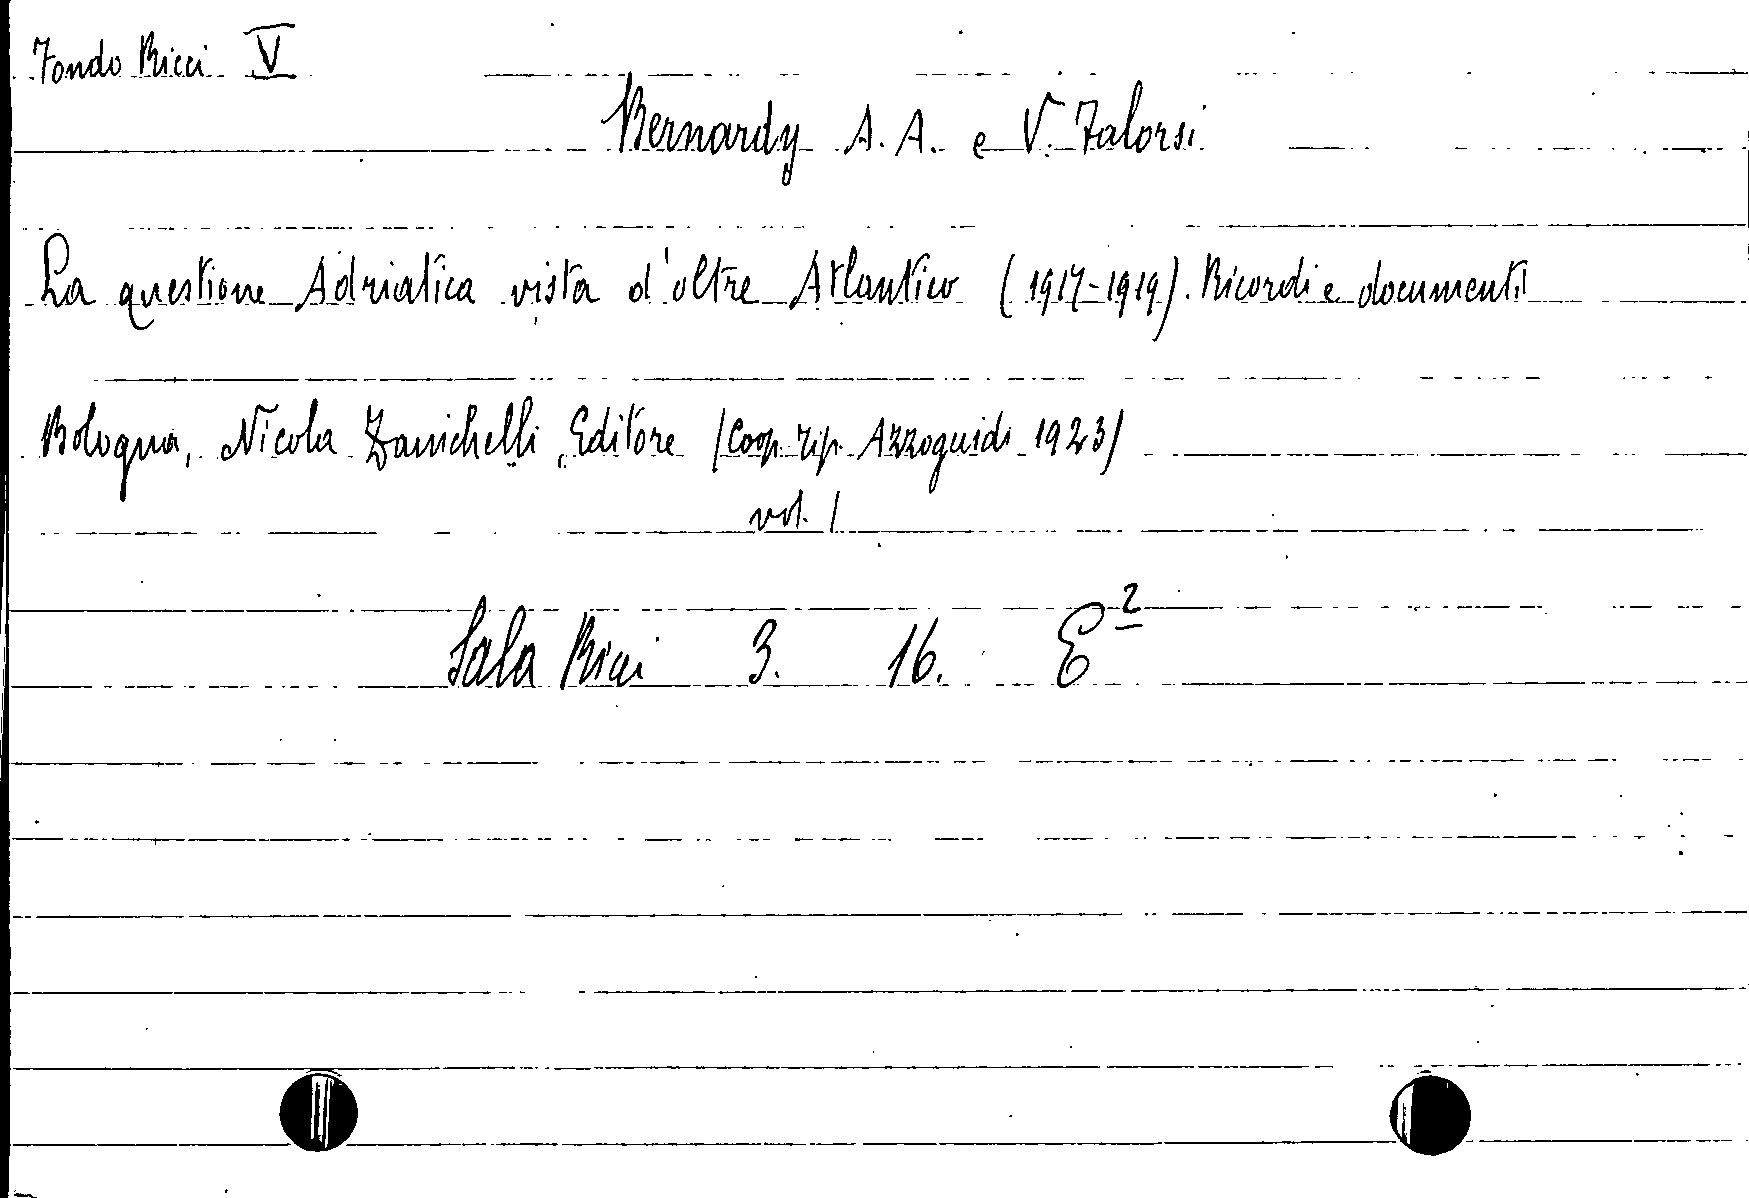 Fondo Ricci V
Bernardy A. A. e V. Falorsi
La questione Adriatica vista d'oltre Atlantico (1917-1919). Ricordi e documenti
Bologna, Nicola Zanichelli, Editore (Coop. Tip. Azzoguidi 1923)
vol. 1
Sala Ricci 3. 16. E²